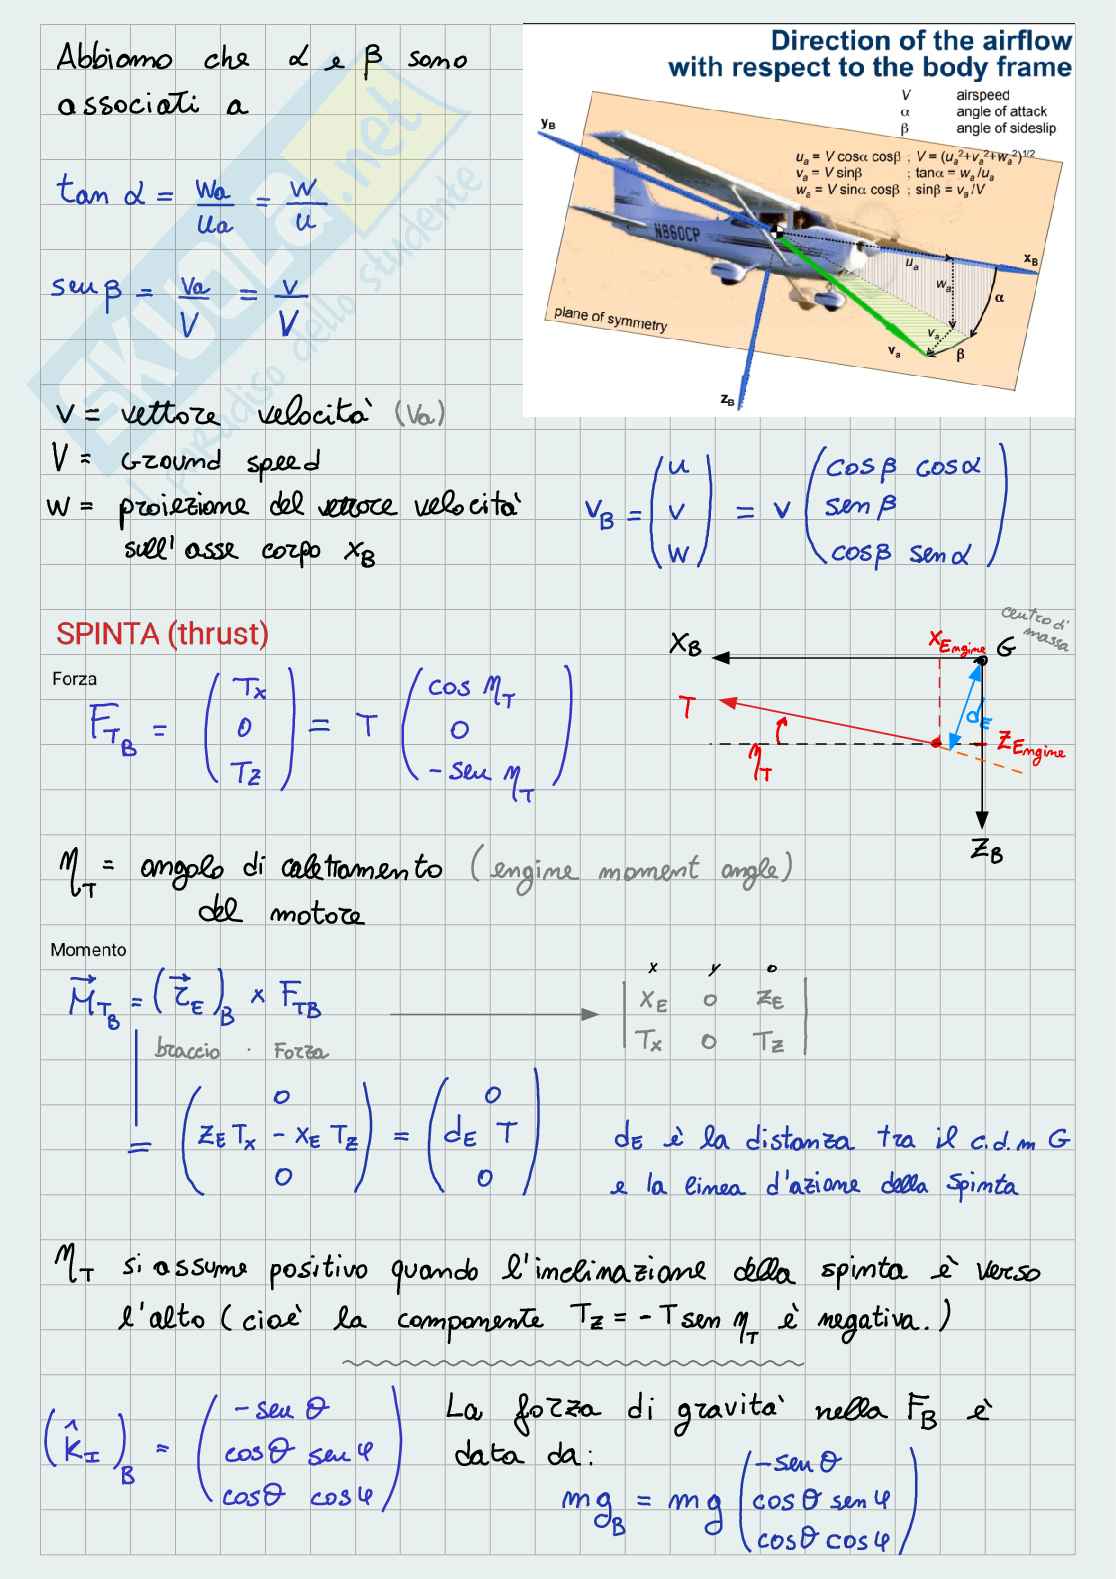 Abbiamo che α e β sono
associati a
tan α = wa/ua = w/u
sen β = va/V = v/V
Direction of the airflow
with respect to the body frame
V airspeed
α angle of attack
β angle of sideslip
ua = V cosα cosβ ; V = (ua²+va²+wa²)^1/2
va = V sinβ ; tanα = wa/ua
wa = V sinα cosβ ; sinβ = va/V
yB
N860CP
xB
ua
wa
α
va
va
β
plane of symmetry
zB
SKUOLA.net
il paradiso dello studente
v = vettore velocità (Va)
V = Ground speed
w = proiezione del vettore velocità
sull'asse corpo xB
vB = (u v w) = v (cosβ cosα
sen β
cosβ sen α)
SPINTA (thrust)
Forza
F_TB = (Tx 0 Tz) = T (cos ηT
0
- sen ηT)
XB
xEngine
G
centro di
massa
T
dE
zEngine
ηT
ZB
ηT = angolo di calettamento (engine moment angle)
del motore
Momento
M_TB = (rE)B × F_TB
braccio · Forza
x y 0
xE 0 zE
Tx 0 Tz
= (0
zE Tx - xE Tz
0) = (0
dE T
0)
dE è la distanza tra il c.d.m G
e la linea d'azione della spinta
ηT si assume positivo quando l'inclinazione della spinta è verso
l'alto (cioè la componente Tz = - T sen ηT è negativa.)
(k̂I)B = (- sen θ
cos θ sen φ
cos θ cos φ)
La forza di gravità nella FB è
data da:
mgB = mg (- sen θ
cos θ sen φ
cos θ cos φ)